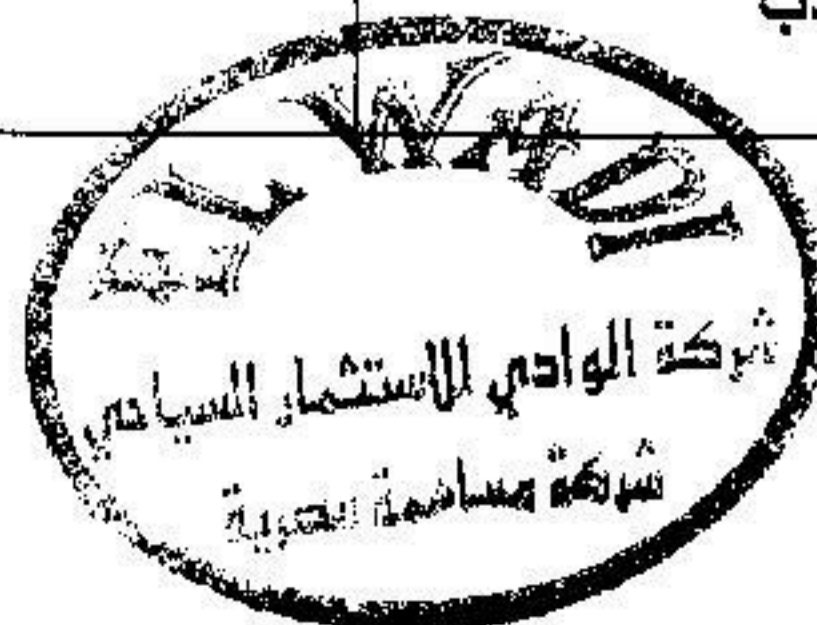 EL WADI
شركة الوادي للاستثمار السياحي
شركة مساهمة مصرية